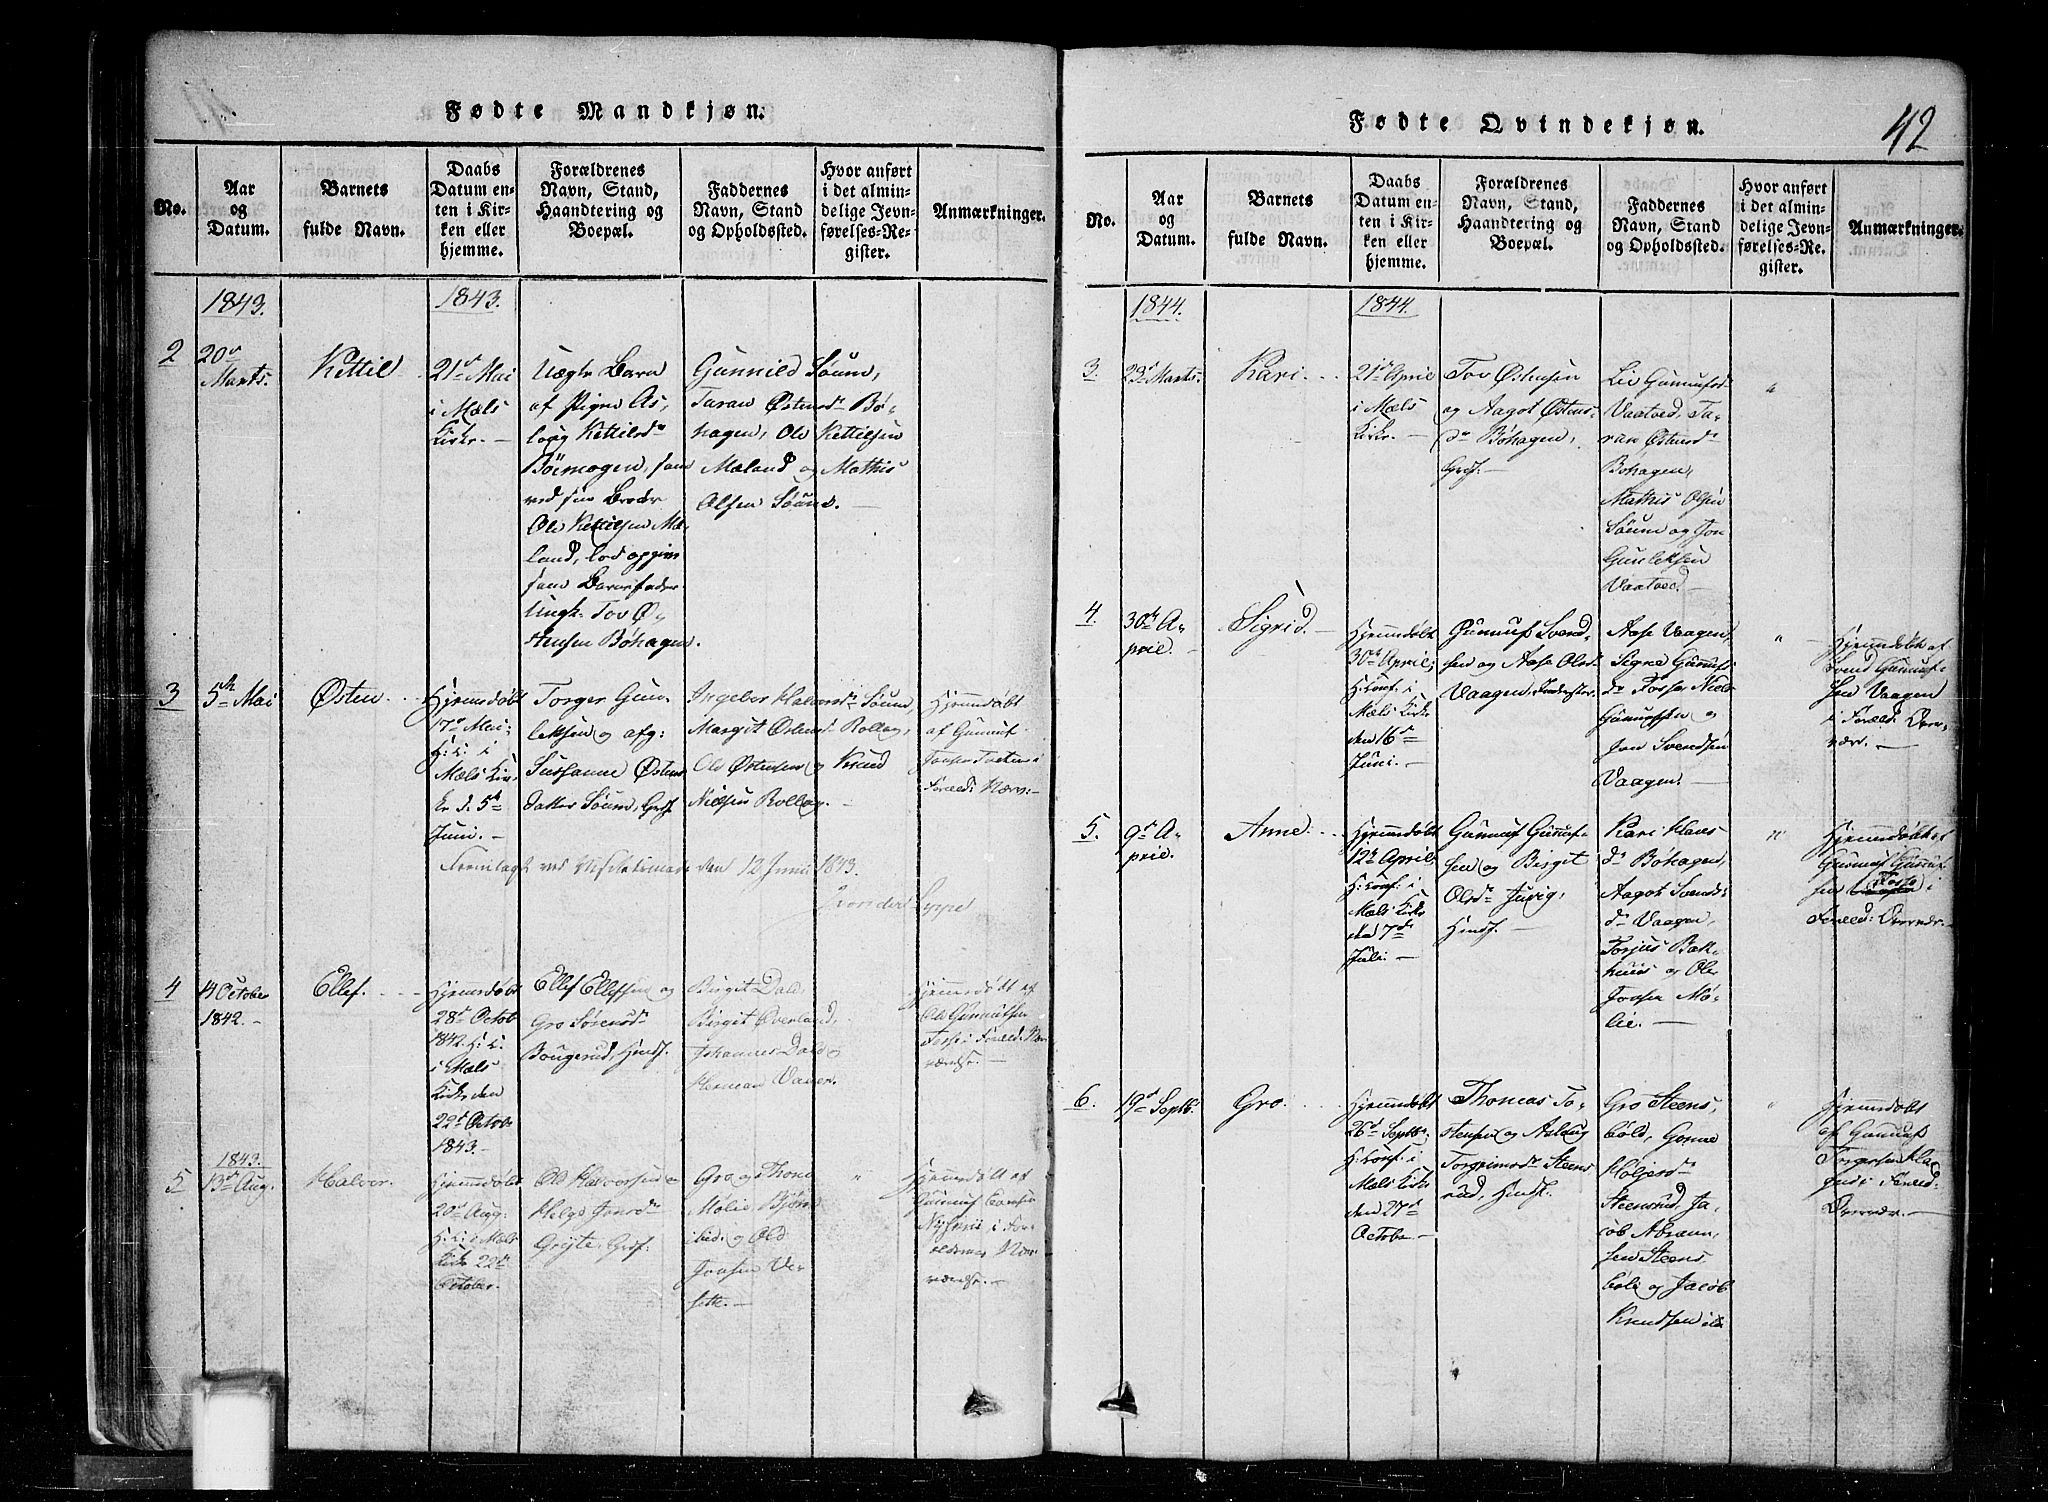 Fødte Mandkjøn.
No.
Aar
og
Datum.
Barnets
fulde Navn.
Daabs
Datum en-
ten i Kir-
ken eller
hjemme.
Forældrenes
Navn, Stand,
Haandtering og
Boepæl.
Faddernes
Navn, Stand
og Opholdssted.
Hvor anført
i det almin-
delige Jevn-
førelses-Re-
gister.
Anmærkninger.
1843.
1843.
2
20de
Marts.
Kettil
21de Mai
i Mæls
Kirke. —
Uægte Barn
af Pigen As-
loug Kettilsdr
Böemogen, som
ved sin Broder
Ole Kettilsen Mæ-
land, lod opgive
som Barnefader
Ungk. Tov Ø-
stensen Bøhagen.
Gunnild Søum,
Taran Østensdr Bø-
hagen, Ole Kettilsen
Mæland og Mathis
Olsen Søum. —
3
5te Mai
Østen
Hjemmedøbt
17de Mai;
H: C: i
Mæls Kir-
ke d. 5te
Juni. —
Torger Gun-
leksen og afg:
Sussanne Østens
datter Søum, Grdf.
Ingebor Halvorsdr Søum,
Margit Østensdr Rollag,
Ole Østensen og Knud
Nielsen Rollag. —
Hjemmedøbt
af Gunnuf
Jonsen i
Foræld: Nærv: —
Fremlagt ved den 12 Juni 1843.
4
14 October
1842. —
Ellef.
Hjemmedøbt
28de Octob
1842. H: C:
i Mæls
Kirke den
22de Octob
1843. —
Ellef Ellefsen og
Gro Sørensdr
Bougerud, Huusf.
Birgit Dale
Birgit Øverland,
Johannes Dale og
Herman Vaaer.
Hjemmedøbt af
Ole Gunnufsen
Fosse i Foræld: Nær-
værelse. —
5
1843.
13de Aug.
Halvor.
Hjemmedøbt
20de Aug:
H: C: i Mæls
Kirke 22de
October.
Ole Halvorsen og
Helge Jonsdr
Grøjte, Grdf:
Gro og Thone
Molie Bjørn
og Ole
Jonsen Ve-
sette. —
"
Hjemmedøbt af
Gunnuf
i For-
ældrenes Nær-
værelse. —
Fødte Qvindekjøn.
42
No.
Aar
og
Datum.
Barnets
fulde Navn.
Daabs
Datum en-
ten i Kir-
ken eller
hjemme.
Forældrenes
Navn, Stand,
Haandtering og
Boepæl.
Faddernes
Navn, Stand
og Opholdssted.
Hvor anført
i det almin-
delige Jevn-
førelses-Re-
gister.
Anmærkninger.
1844.
1844.
3.
23de Marts.
Kari.
21de April
i Mæls
Kirke. —
Tov Østensen
og Aagot Østens-
dr Bøhagen,
Grdf. —
Liv Gunnufsdr
Vaatved, Ta-
ran Østensdr
Bøhagen,
Mathis Olsen
Søum og Jon
Gunleksen
Vaatved. —
"
4.
30te A-
pril.
Sigrid.
Hjemmedøbt
30te April;
H: Conf. i
Mæls Kirke
den 16de
Juni. —
Gunnuf Svend-
sen og Aase Olsdr
Vaagen,
Aase Vaagen,
Signe Gunnufs-
dr Fosse, Niels
Gunnufsen og
Jon Svendsen
Vaagen. —
"
Hjemmedøbt af
Svend Gunnuf-
sen Vaagen
i Foræld: Over-
vær. —
5.
9de A-
pril.
Anne
Hjemmedøbt
12te April;
H: Conf. i
Mæls Kirke
den 7de
Juli. —
Gunnuf Gunnuf-
sen og Birgit
Olsdr Juvig,
Huusf. —
Kari Klaus
dr Bøhagen,
Aagot Svends-
dr Vaagen,
Torjus Bak-
huus og Ole
Jonsen Mø-
lie. —
"
Hjemmedøbt af
Gunnuf Gunnuf-
sen Fosse i
Foræld: Overvær. —
6.
19de Septb.
Gro.
Hjemmedøbt
26de Septb.
H: Conf. i
Mæls Kirke
den 27de
Octobr —
Thomas To-
stensen og Aslaug
Torgrimsdr Steens
rud, Huusf.
Gro Steens-
bøle, Gonne
Holjersdr
Steensrud, Ja-
cob Abram-
sen Steens
bøle og Jacob
Knudsen
"
Hjemmedøbt
af Gunnuf
Torgersen
i Foræld:
Overvær. —